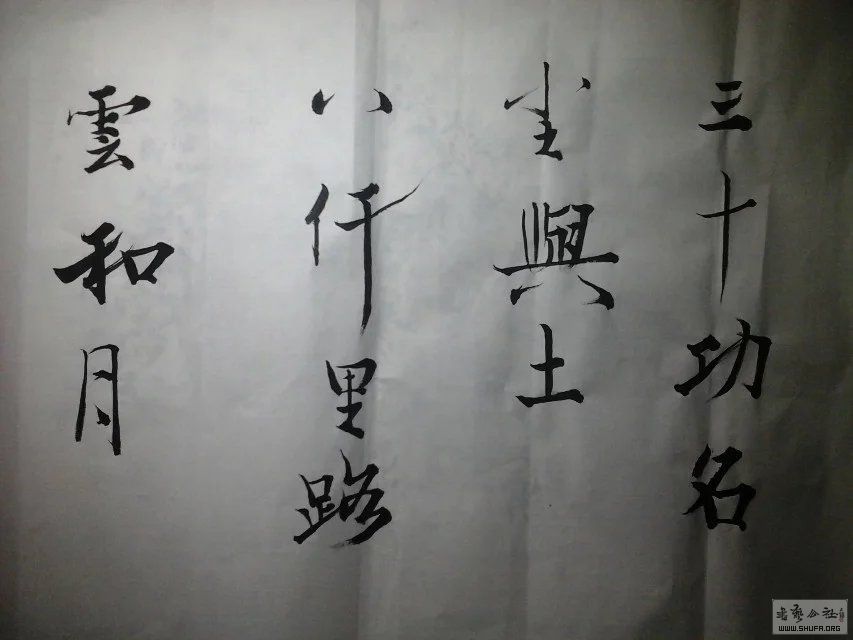 三十功名
尘與土
八仟里路
雲和月
书艺公社
WWW.SHUFA.ORG